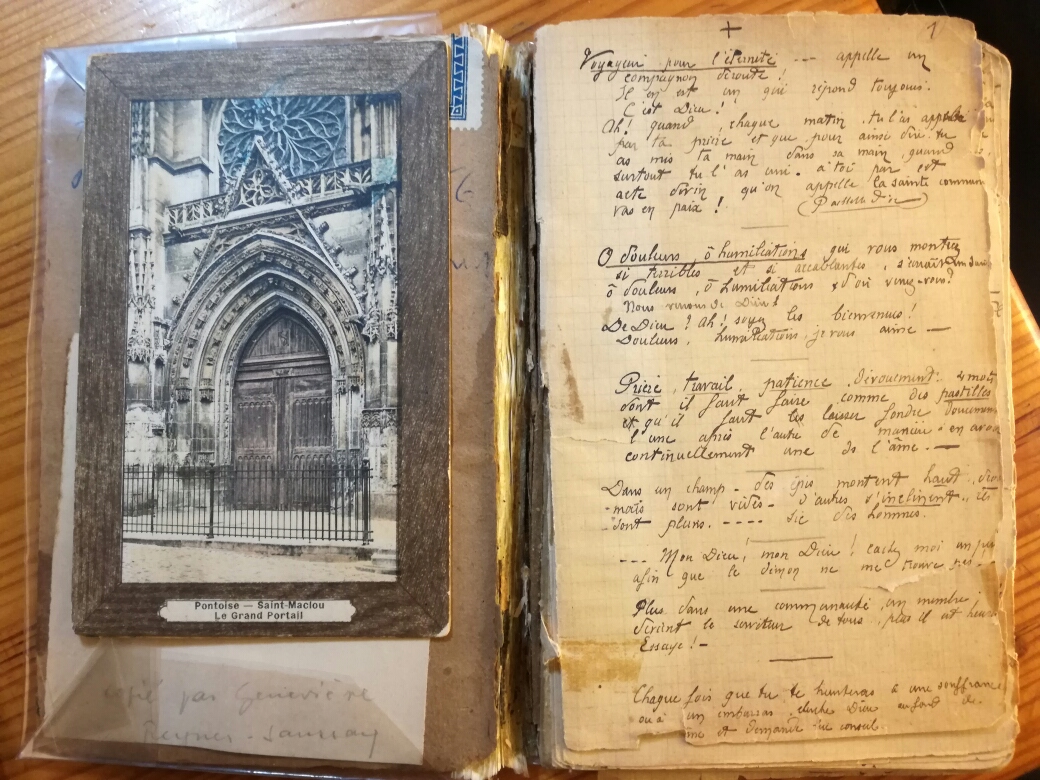 Pontoise — Saint-Maclou
Le Grand Portail
copié par Geneviève
+
1
Voyageur pour l'éternité --- appelle un
compagnon de route !
Il en est un qui répond toujours.
C'est Dieu !
Ah ! quand, chaque matin, tu l'as appelé
par ta prière et que pour ainsi dire tu
as mis ta main dans sa main, quand
surtout tu l'as uni à toi par cet
acte divin qu'on appelle la sainte commun
vas en paix !
O douleurs, ô humiliations qui vous montrez
si terribles et si accablantes,
ô douleurs, ô humiliations d'où venez-vous ?
Nous venons de Dieu !
De Dieu ? Ah ! soyez les bienvenues !
Douleurs, humiliations, je vous aime —
Prière, travail, patience, dévouement : 4 mots
dont il faut faire comme des pastilles
et qu'il faut les laisser fondre doucement
l'une après l'autre de manière à en avoir
continuellement une ds l'âme. —
Dans un champ - des épis montent haut,
mais sont vides - d'autres s'inclinent, ils
sont pleins. ---- sic des hommes.
--- Mon Dieu ! mon Dieu ! cachez moi un peu
afin que le démon ne me trouve pas -
Plus dans une communauté, un membre
devient le serviteur de tous, plus il est heureux
Essaye ! -
Chaque fois que tu te heurteras à une souffrance
ou à un embarras, cherche Dieu au fond de
me et demande lui conseil.